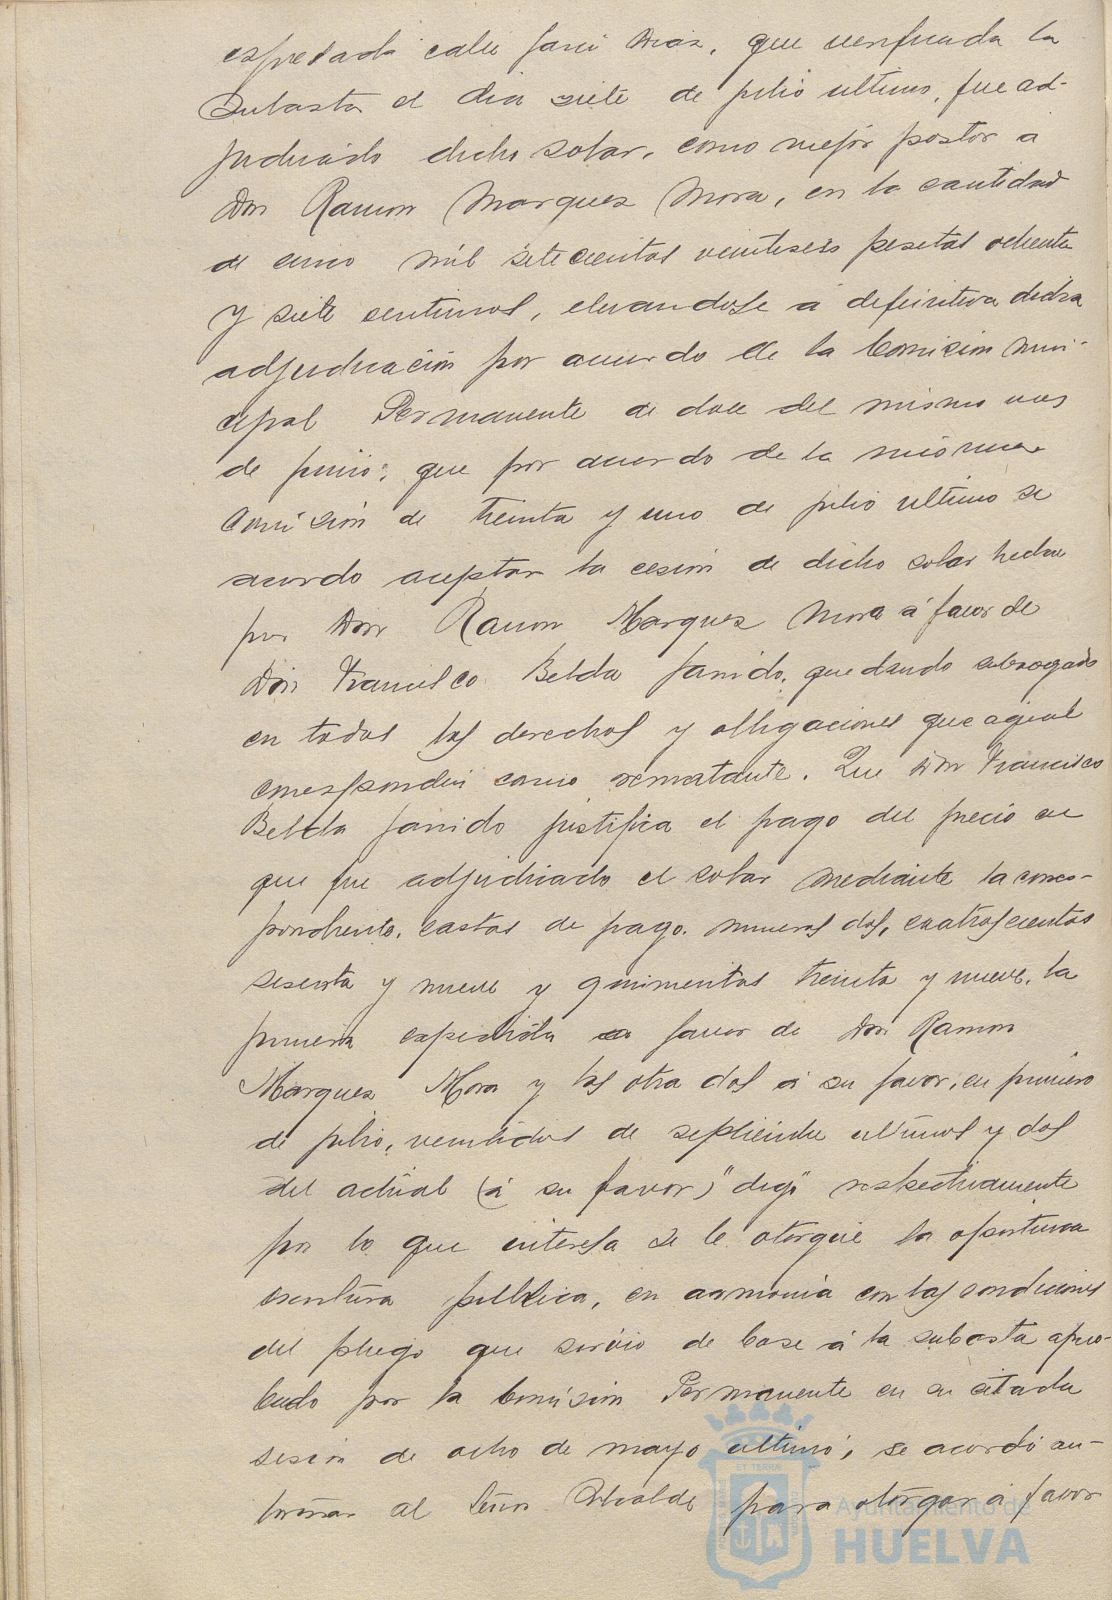 espresada calle Jani Diaz, que verificada la
Subasta el dia siete de julio ultimo, fue ad-
judicado dicho solar, como mejor postor a
Don Ramon Marquez Mora, en la cantidad
de cinco mil setecientas veintiseis pesetas ochenta
y siete sentimos, elevandose a definitiva dicha
adjudicación por acuerdo de la Comision Muni-
cipal Permanente de doce del mismo mes
de junio; que por acuerdo de la misma
Comisión de treinta y uno de julio ultimo se
acordo aceptar la cesión de dicho solar hecha
por Don Ramon Marquez Mora á favor de
Don Francisco Belda, quedando subrogado
en todos los derechos y obligaciones que aquel
corespondia como rematante. Que Don Francisco
Belda justifica el pago del precio en
que fue adjudicado el solar mediante la corres-
pondiente, cartas de pago. numeros dos, cuatroscientos
sesenta y nueve y quinientos treinta y nueve, la
primera expedida a favor de Don Ramon
Marquez Mora y las otra dos á su favor, en primero
de julio, ventidos de septiembre ultimos y dos
del actual (á su favor) "digo" respectivamente
por lo que interesa se le otorgue la oportuna
escritura publica, en armonia con las condiciones
del pliego que sirvio de base á la subasta apro-
bado por la Comisión Permanente en su citada
sesión de ocho de mayo ultimo, se acordó au-
torizar al Señor Alcalde para otorgar á favor
ET TERRA
Ayuntamiento de
HUELVA